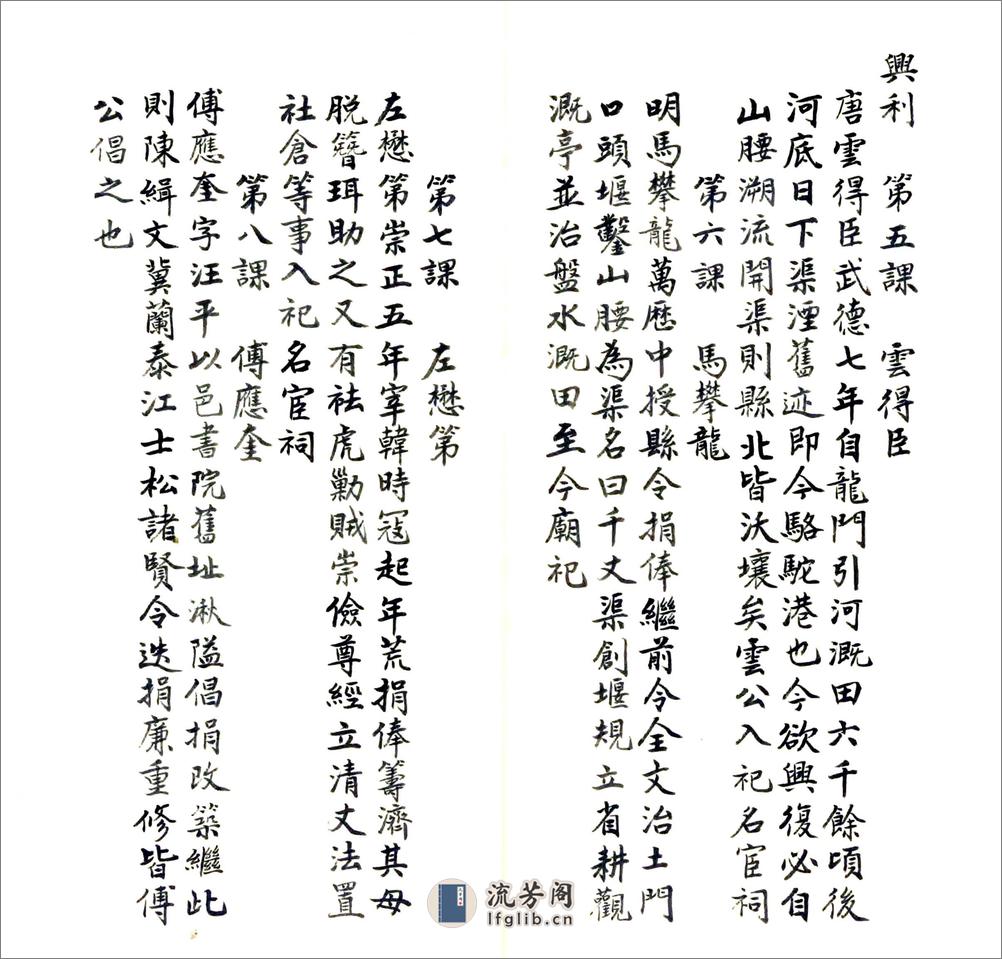 興利　第五課　雲得臣
唐雲得臣武德七年自龍門引河溉田六千餘頃後
河底日下渠湮舊迹即今駱駝港也今欲興復必自
山腰溯流開渠則縣北皆沃壤矣雲公入祀名宦祠
第六課　馬攀龍
明馬攀龍萬歷中授縣令捐俸繼前令全文治土門
口頭堰鑿山腰為渠名曰千丈渠創堰規立省耕觀
溉亭並治盤水溉田至今廟祀
第七課　左懋第
左懋第崇正五年宰韓時冦起年荒捐俸籌濟其母
脱簪珥助之又有祛虎勦賊崇儉尊經立清丈法置
社倉等事入祀名宦祠
第八課　傅應奎
傅應奎字汪平以邑書院舊址湫隘倡捐改築繼此
則陳緝文冀蘭泰江士松諸賢令迭捐廉重修皆傅
公倡之也
流芳阁
lfglib.cn